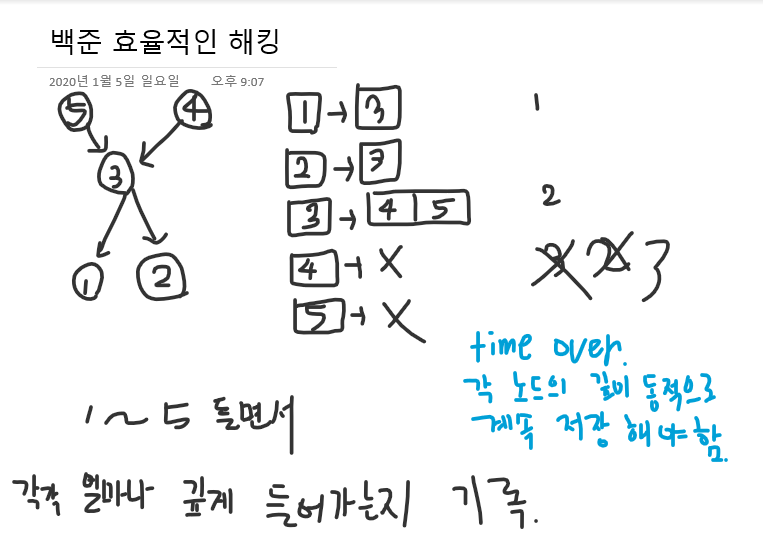 백준 효율적인 해킹
2020년 1월 5일 일요일 오후 9:07
5 4
3
1 2
1 → 3
2 → 3
3 → 4 5
4 → X
5 → X
1
2
3
time over.
각 노드의 깊이 동적으로
계속 저장 해야함.
1 ~ 5 돌면서
각각 얼마나 깊게 들어가는지 기록.